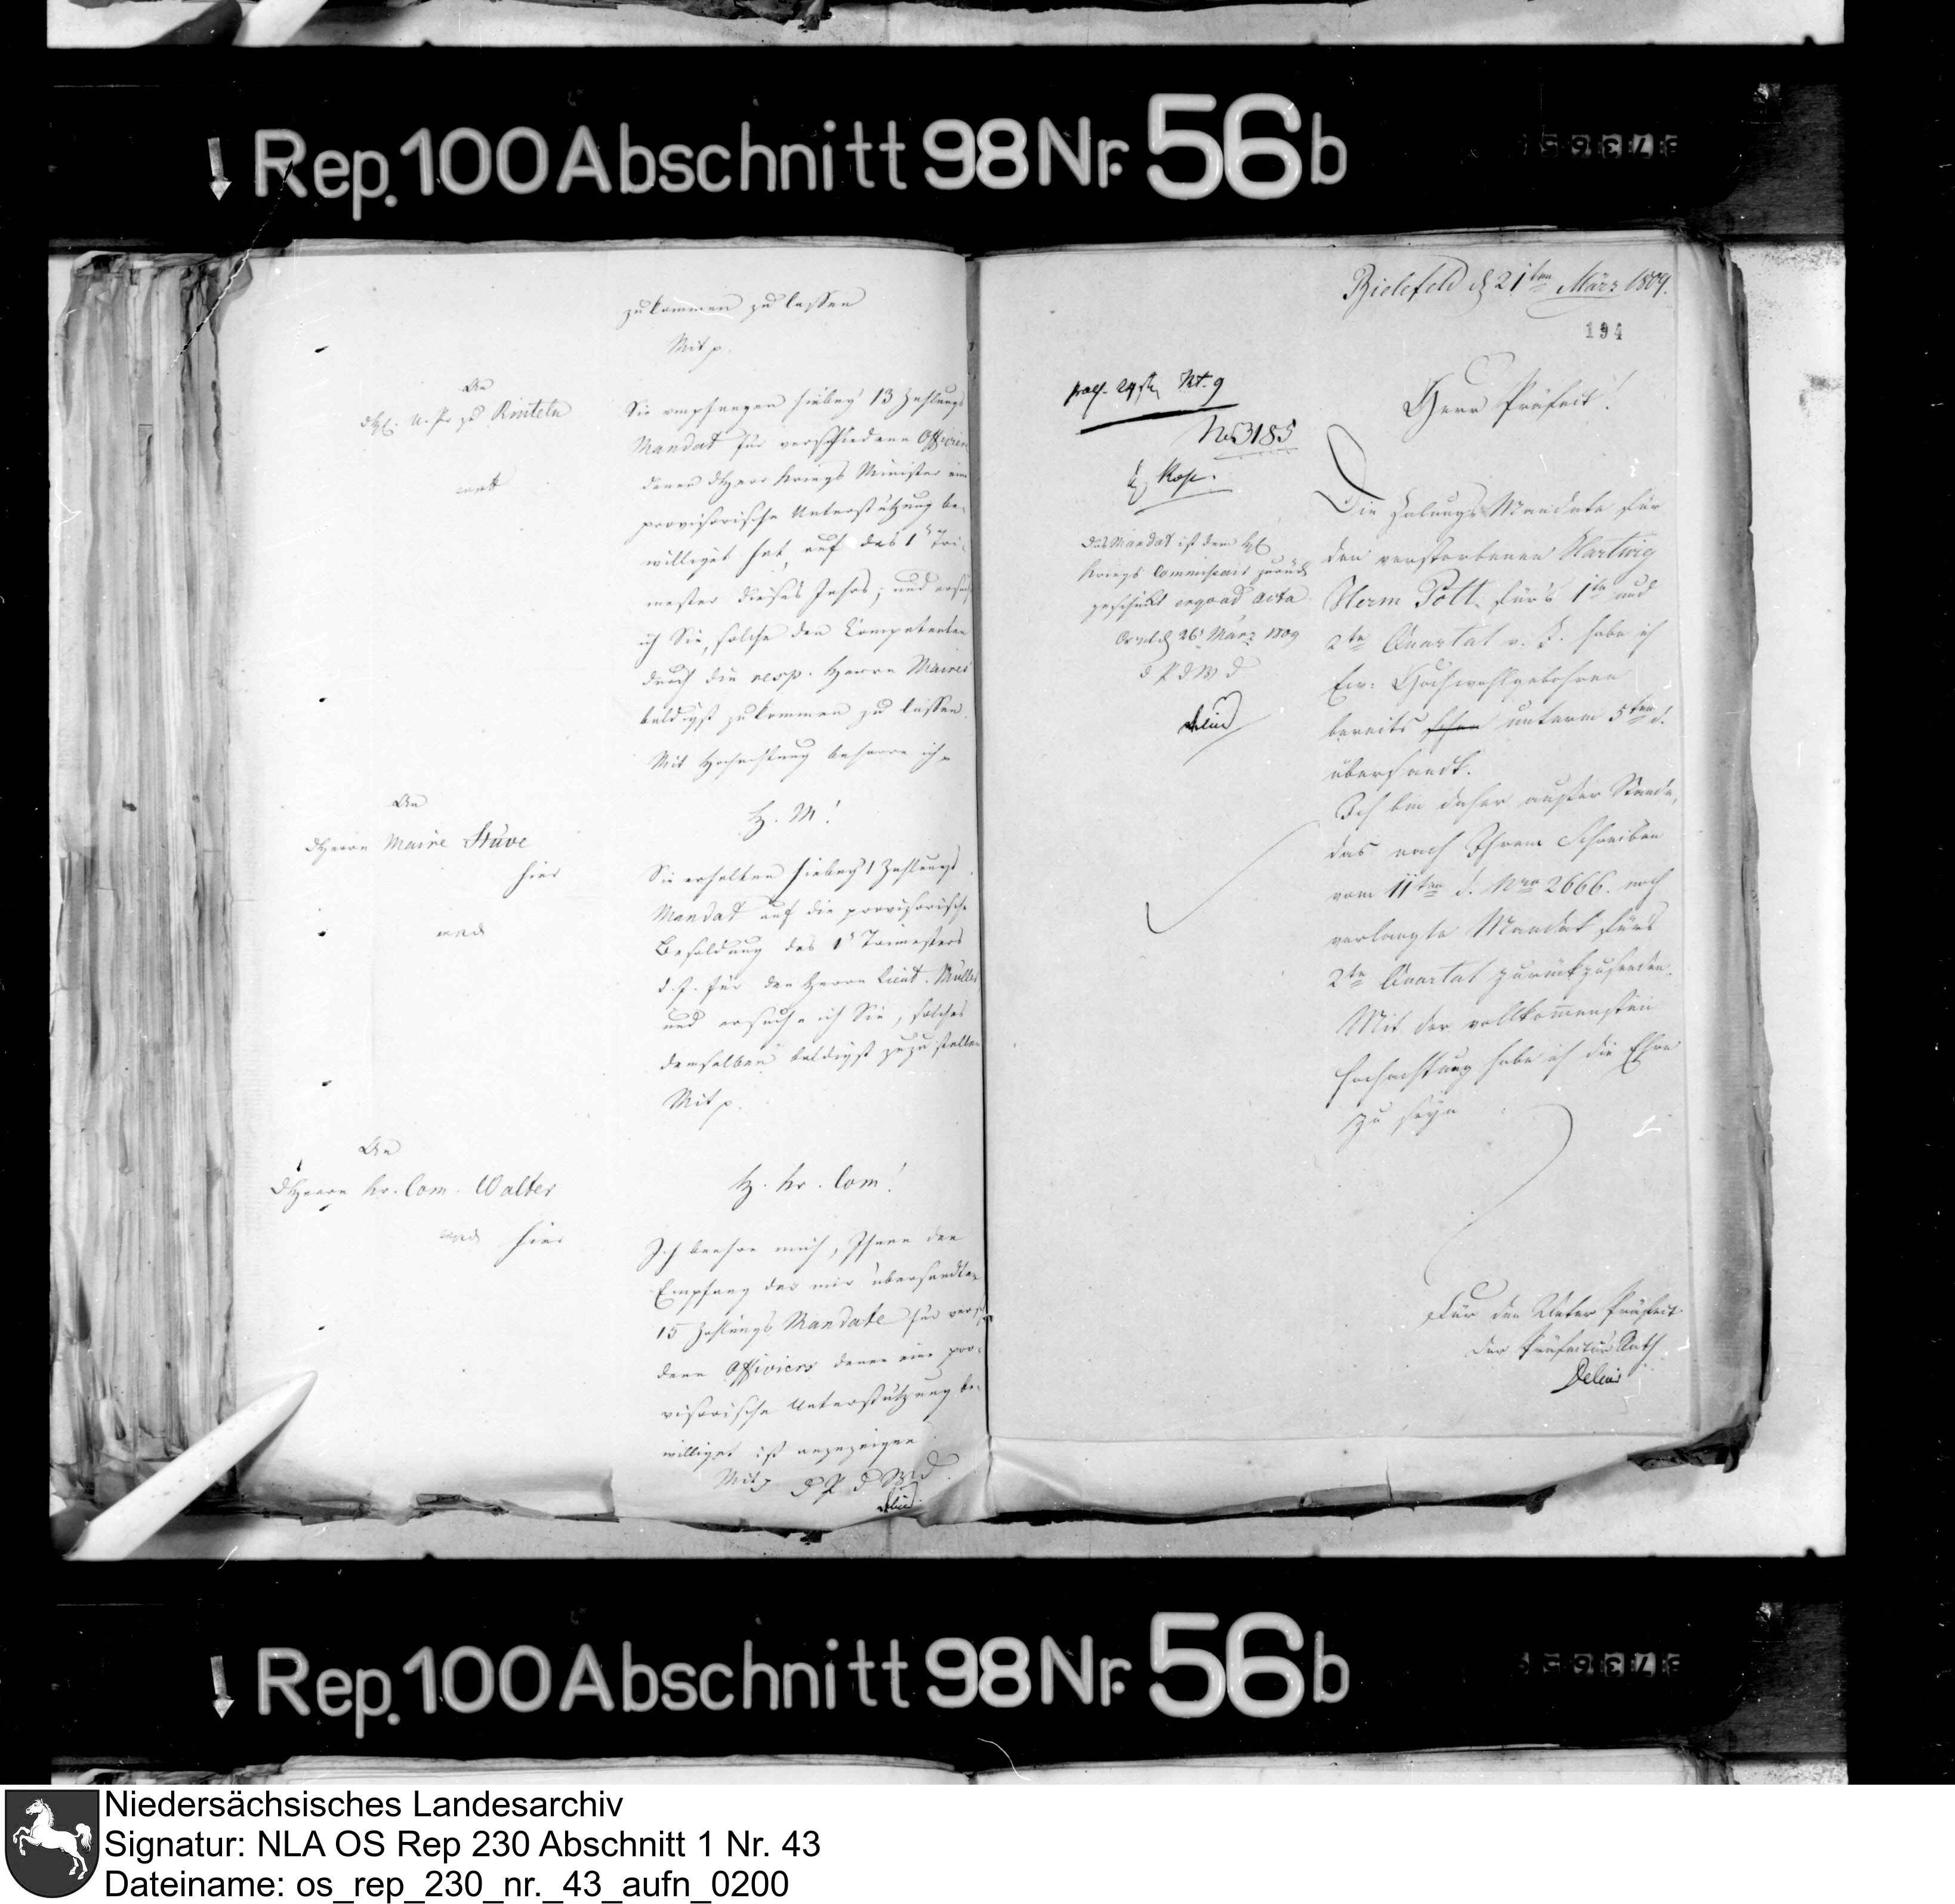 Rep. 100 Abschnitt 98 Nr. 56b
zukommen zu lassen
Mit p.
An
d H. U. Pr. zu Rinteln
Sie empfangen hiebey 13 Zahlungs
Mandat für verschiedene Officiere
denen d Herr Kriegs Minister eine
provisorische Unterstützung be-
williget hat, auf das 1s Tri-
mester dieses Jahrs; und ersuche
ich Sie, solche den Competenten
durch die resp. Herrn Maires
baldigst zukommen zu lassen.
Mit Hochachtung beharre ich
An
d Herrn Maire Stüve
hier
H. M!
Sie erhalten hiebey 1 Zahlungs
Mandat auf die provisorische
Besoldung des 1s Trimesters
d. J. für den Herrn Lieut. Müller
und ersuche ich Sie, solches
demselben baldigst zuzustellen
Mit p.
An
d Herrn Kr. Com. Walter
hier
H. Kr. Com!
Ich beehre mich, Ihnen den
Empfang der mir übersandten
15 Zahlungs Mandate für versch
dene Officiers denen eine pro-
visorische Unterstützung be-
williget ist anzuzeigen.
Mit p d P d W D
Delius
Bielefeld d 21ten März 1809.
194
Herr Präfect!
No 3185
Das Mandat ist dem H
Kriegs Commissair zurück
geschickt ergo ad acta
Osnabr. d 26 März 1809
d P d W D
Delius
Die Zalungs Mandate für
den verstorbenen Hartwig
Herm Pott fürs 1te und
2te Quartal v. J. habe ich
Ew: Hochwohlgebohren
bereits schon unterm 5ten d.
übersandt.
Ich bin daher außer Stande,
das nach Ihrem Schreiben
vom 11ten d. Nro 2666. noch
verlangte Mandat fürs
2te Quartal zurückzusenden.
Mit der vollkommensten
Hochachtung habe ich die Ehre
zu seyn
Für den Unter Präfect
der Präfectur Rath
Delius
Rep. 100 Abschnitt 98 Nr. 56b
Niedersächsisches Landesarchiv
Signatur: NLA OS Rep 230 Abschnitt 1 Nr. 43
Dateiname: os_rep_230_nr._43_aufn_0200